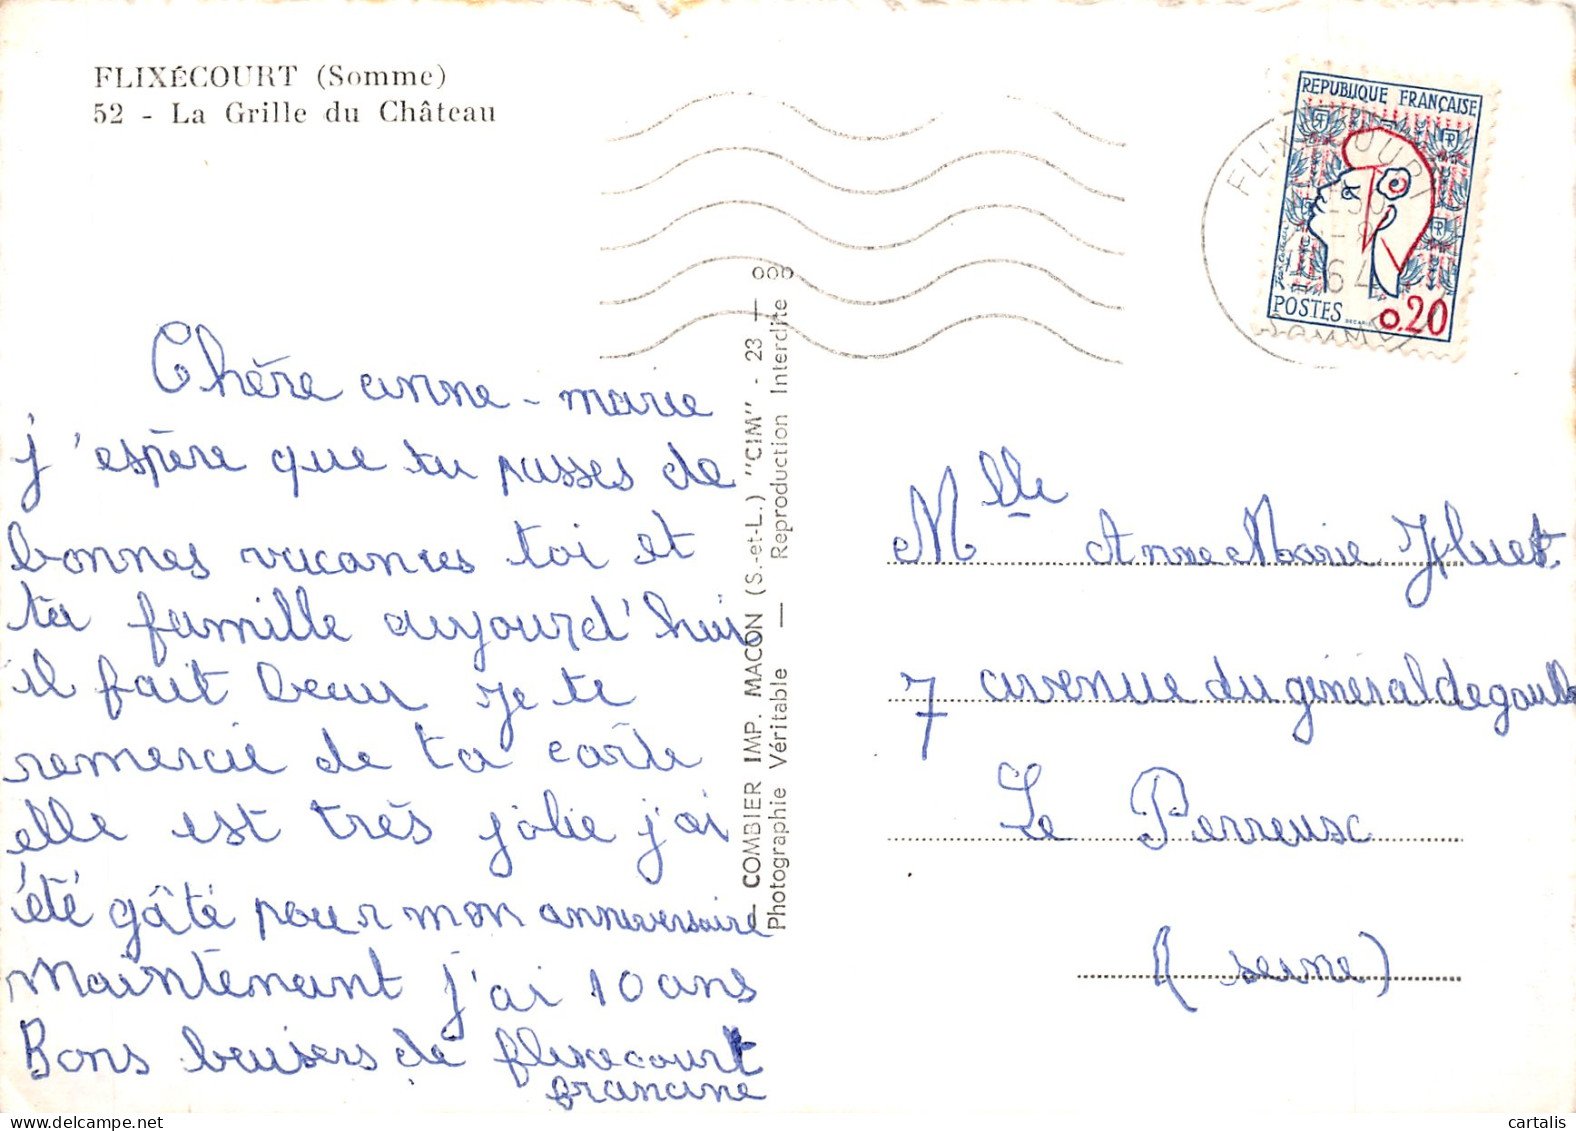 FLIXÉCOURT (Somme)
52 - La Grille du Château
Chère anne-marie
j'espère que tu passes de
bonnes vacances toi et
ta famille aujourd'hui
il fait beau je te
remercie de ta carte
elle est très jolie j'ai
été gâté pour mon anniversaire
Maintenant j'ai 10 ans
Bons baisers de flixecourt
francine
COMBIER IMP. MACON (S.-et-L.) "CIM" - 23 —
Photographie Véritable — Reproduction Interdite
REPUBLIQUE FRANÇAISE
POSTES 0,20
SOMME
Mlle Anne Marie
7 avenue du général de gaulle
Le Perreux
(seine)
cartalis